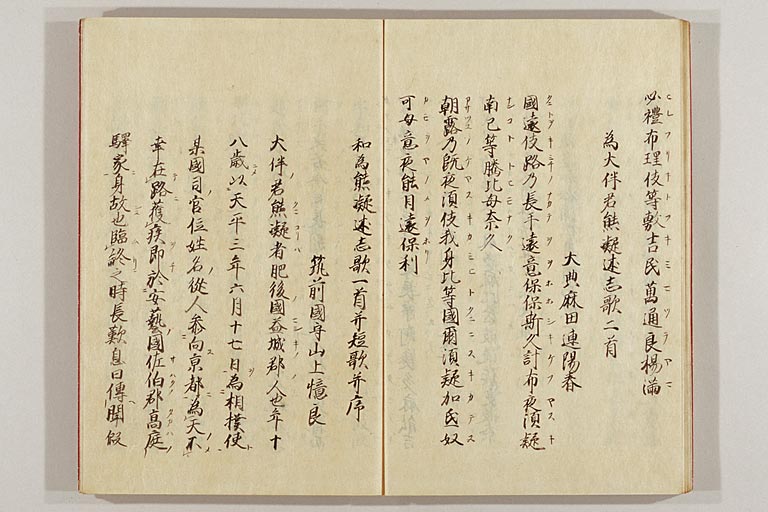 必禮布理伎等敷吉民萬通良楊満
為大伴君熊凝述志歌二首
大典麻田連陽春
國遠伎路乃長手遠意保保斯久計布夜須疑
南己等騰比母奈久
朝露乃既夜須伎我身比等國尓須疑加弖奴
可母意夜能目遠保利
和為熊凝述志歌一首并短歌并序
筑前國守山上憶良
大伴君熊凝者肥後國益城郡人也年十
八歳以天平三年六月十七日為相撲使
某國司官位姓名從人参向京都為天不
幸在路獲疾即於安藝國佐伯郡高庭
驛家身故也臨終之時長歎息曰傳聞假